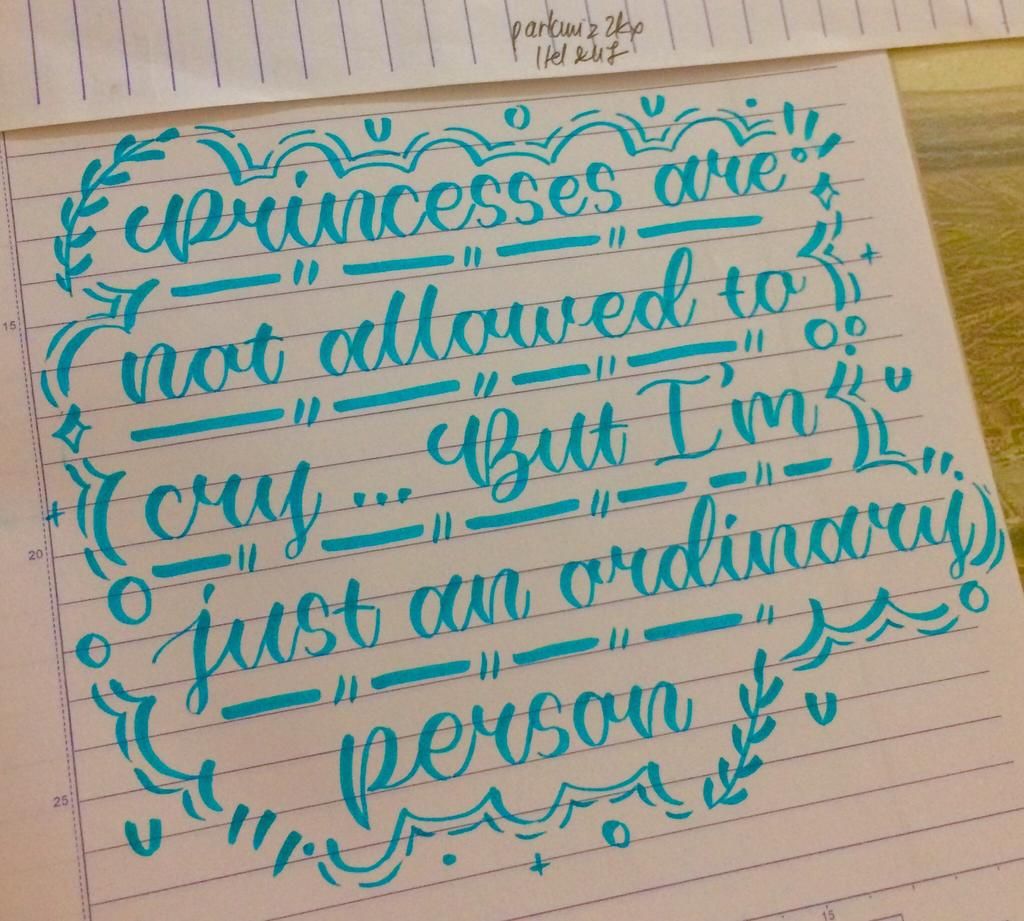 princesses are
not allowed to
cry ... But I'm
just an ordinary
person
15
20
25
15